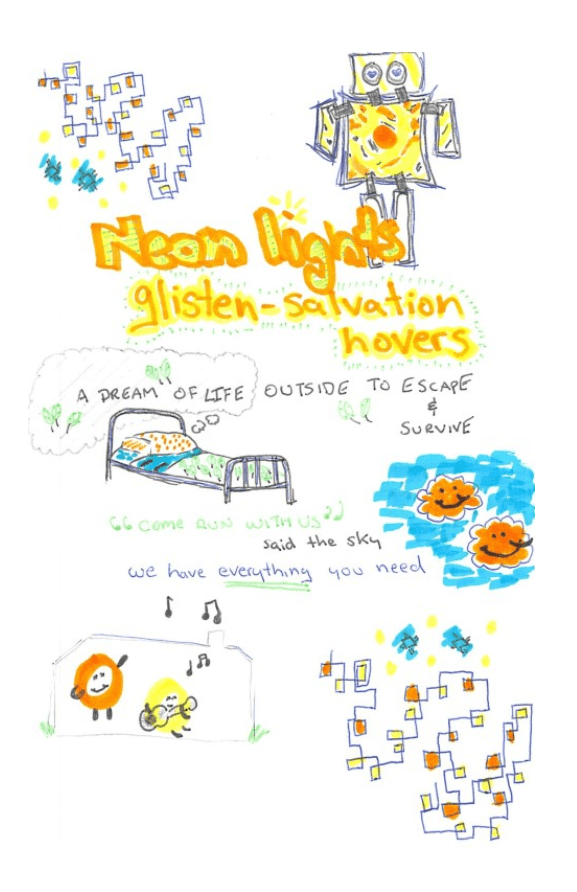 Neon lights
glisten-salvation
hovers
A DREAM OF LIFE OUTSIDE TO ESCAPE
&
SURVIVE
“COME RUN WITH US”
said the sky
we have everything you need